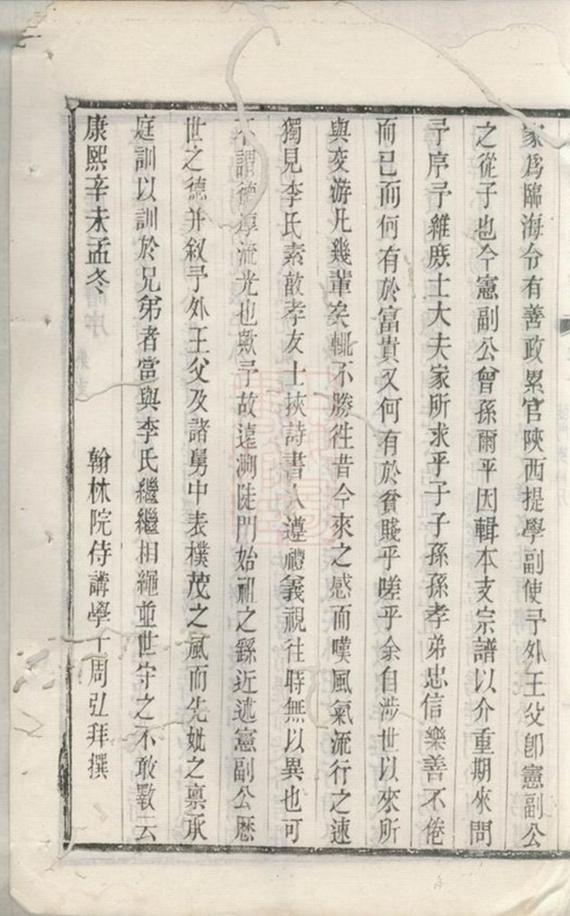 家爲臨海令有善政累官陜西提學副使予外王父卽憲副公
之從子也今憲副公曾孫爾平因輯本支宗譜以介重期來問
予序予維庶士大夫家所求乎子子孫孫孝弟忠信樂善不倦
而已而何有於富貴又何有於貧賤乎嗟乎余自涉世以來所
與交游凡幾輩矣輒不勝徃昔今來之感而嘆風氣流行之速
獨見李氏素敵孝友士挾詩書人遵禮義視往時無以異也可
不謂德厚流光也歟予故遠溯陡門始祖之繇近述憲副公歷
世之德并叙予外王父及諸舅中表樸茂之風而先妣之禀承
庭訓以訓於兄弟者當與李氏繼繼相繩並世守之不敢斁云
康熙辛未孟冬　翰林院侍講學士周弘拜撰